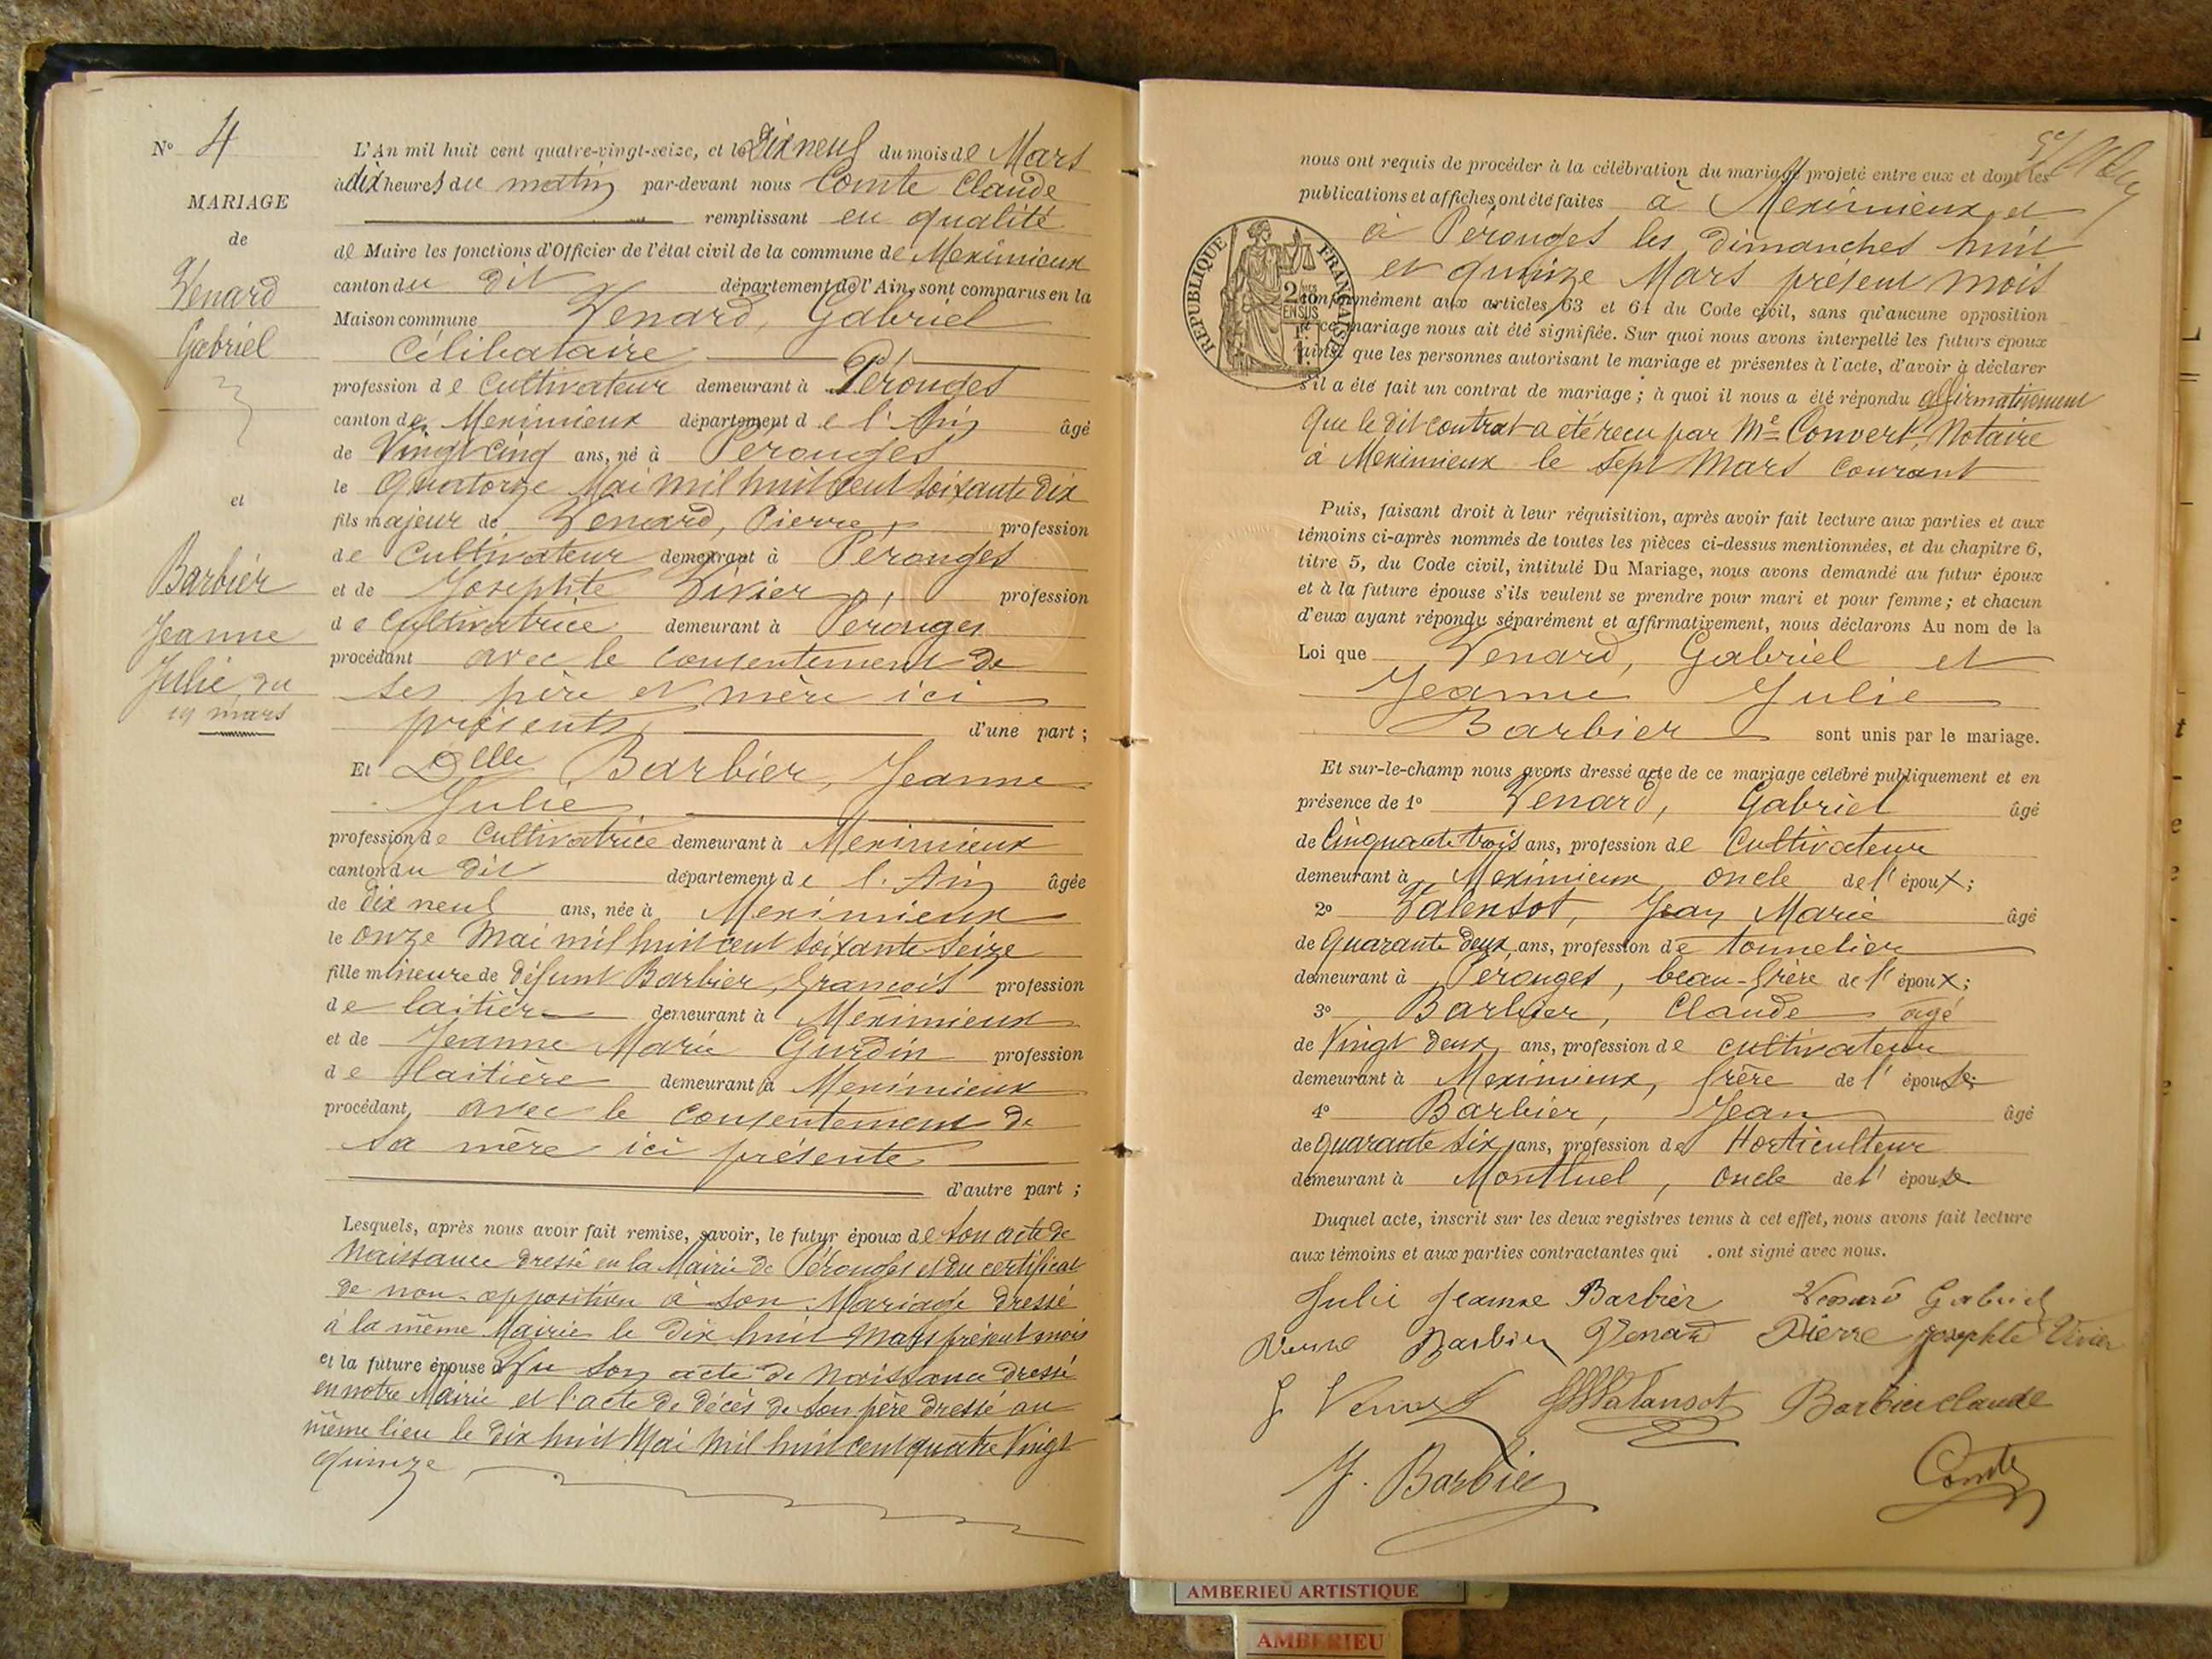 N° 4
MARIAGE
de
Venard
Gabriel
et
Barbier
Jeanne
Julie, du
19 mars
L'An mil huit cent quatre-vingt-seize, et le Dix neuf du mois de Mars
à dix heures du matin par-devant nous Comte Claude
remplissant en qualité
de Maire les fonctions d'Officier de l'état civil de la commune de Meximieux
canton du dit département de l'Ain, sont comparus en la
Maison commune Venard, Gabriel
Célibataire
profession de Cultivateur demeurant à Pérouges
canton de Meximieux département de l'Ain âgé
de Vingt cinq ans, né à Pérouges
le Quatorze Mai mil huit cent soixante dix
fils majeur de Venard, Pierre, profession
de Cultivateur demeurant à Pérouges
et de Josephte Vivier, profession
de Cultivatrice demeurant à Pérouges
procédant avec le consentement de
ses père et mère ici
présents d'une part ;
Et Delle Barbier, Jeanne
Julie
profession de Cultivatrice demeurant à Meximieux
canton du dit département de l'Ain âgée
de Dix neuf ans, née à Meximieux
le onze Mai mil huit cent soixante seize
fille mineure de défunt Barbier, François profession
de laitier demeurant à Meximieux
et de Jeanne Marie Gurdin profession
de laitière demeurant à Meximieux
procédant avec le consentement de
sa mère ici présente
d'autre part ;
Lesquels, après nous avoir fait remise, savoir, le futur époux de son acte de
Naissance dressé en la Mairie de Pérouges et du certificat
de non-opposition à son Mariage dressé
à la même Mairie le dix huit Mars présent mois
et la future épouse Vu son acte de Naissance dressé
en notre Mairie et l'acte de décès de son père dressé au
même lieu le dix huit Mai mil huit cent quatre Vingt
quinze
nous ont requis de procéder à la célébration du mariage projeté entre eux et dont les
publications et affiches ont été faites à Meximieux et
à Pérouges les dimanches huit
et quinze Mars présent mois
REPUBLIQUE FRANÇAISE
conformément aux articles 63 et 64 du Code civil, sans qu'aucune opposition
à ce mariage nous ait été signifiée. Sur quoi nous avons interpellé les futurs époux
ainsi que les personnes autorisant le mariage et présentes à l'acte, d'avoir à déclarer
s'il a été fait un contrat de mariage ; à quoi il nous a été répondu affirmativement
Que le dit contrat a été recu par Me Convert, Notaire
à Meximieux le sept Mars courant
Puis, faisant droit à leur réquisition, après avoir fait lecture aux parties et aux
témoins ci-après nommés de toutes les pièces ci-dessus mentionnées, et du chapitre 6,
titre 5, du Code civil, intitulé Du Mariage, nous avons demandé au futur époux
et à la future épouse s'ils veulent se prendre pour mari et pour femme ; et chacun
d'eux ayant répondu séparément et affirmativement, nous déclarons Au nom de la
Loi que Venard, Gabriel et
Jeanne Julie
Barbier sont unis par le mariage.
Et sur-le-champ nous avons dressé acte de ce mariage célébré publiquement et en
présence de 1° Venard, Gabriel âgé
de Cinquante trois ans, profession de Cultivateur
demeurant à Meximieux, oncle de l'époux ;
2° Valensot, Jean Marie âgé
de Quarante deux ans, profession de tonnelier
demeurant à Pérouges, beau-frère de l'époux ;
3° Barbier, Claude agé
de Vingt deux ans, profession de cultivateur
demeurant à Meximieux, frère de l'épouse ;
4° Barbier, Jean âgé
de quarante six ans, profession de Horticulteur
demeurant à Montluel, oncle de l'épouse
Duquel acte, inscrit sur les deux registres tenus à cet effet, nous avons fait lecture
aux témoins et aux parties contractantes qui ont signé avec nous.
Julie Jeanne Barbier Venard Gabriel
Barbier Venard Pierre Josephte Vivier
Valansot Barbier Claude
J. Barbier Comte
AMBERIEU ARTISTIQUE
AMBERIEU